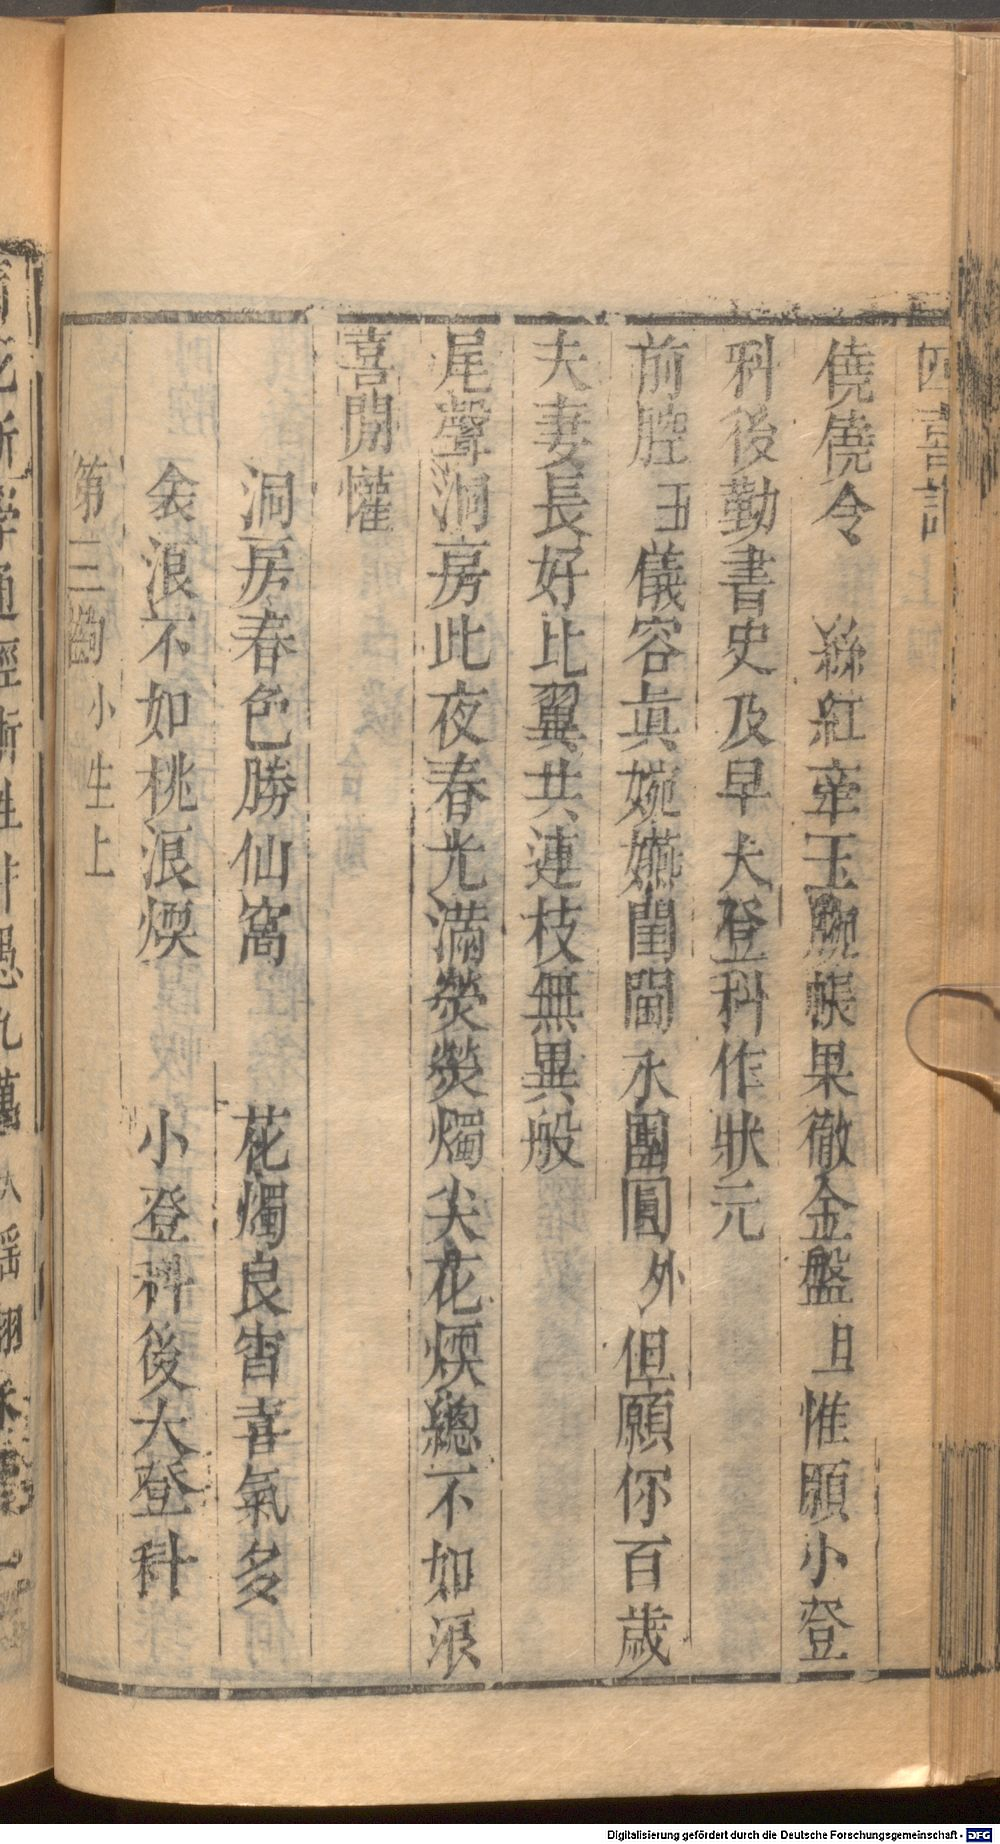 四喜記
僥僥令　絲紅牽玉腕帳果徹金盤旦惟願小登
科後勤書史及早大登科作狀元
前腔王儀容眞婉嬿閨閫永團圓外但願你百歲
夫妻長好比翼共連枝無異般
尾聲洞房此夜春光滿熒熒燭尖花煗總不如浪
喜開懽
洞房春色勝仙窩　花燭良宵喜氣多
衾浪不如桃浪煗　小登科後大登科
第三齣小生上
Digitalisierung gefördert durch die Deutsche Forschungsgemeinschaft - DFG